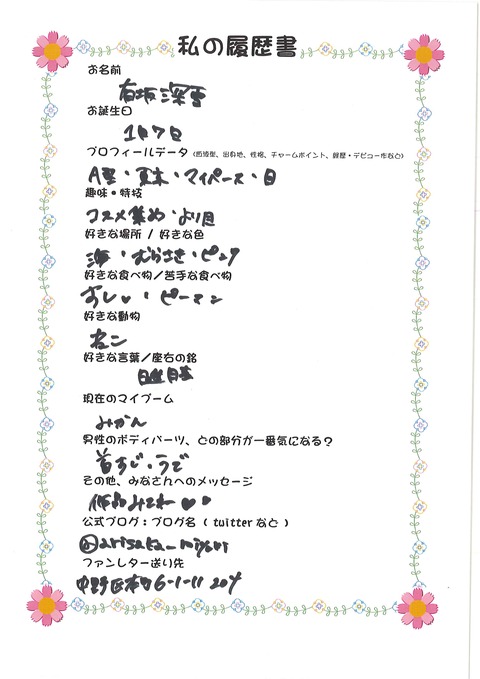 私の履歴書
お名前
有坂深雪
お誕生日
1月7日
プロフィールデータ（血液型、出身地、性格、チャームポイント、経歴・デビュー作など）
A型・東京・マイペース・目
趣味・特技
コスメ集め・より目
好きな場所 / 好きな色
海・むらさき・ピンク
好きな食べ物／苦手な食べ物
すし♥・ピーマン
好きな動物
ねこ
好きな言葉／座右の銘
日進月歩
現在のマイブーム
みかん
男性のボディパーツ、どの部分が一番気になる？
首すじ・うで
その他、みなさんへのメッセージ
作品みてね♥♥
公式ブログ：ブログ名（twitterなど）
@arisaka_miyuki
ファンレター送り先
中野区本町6-1-11 204